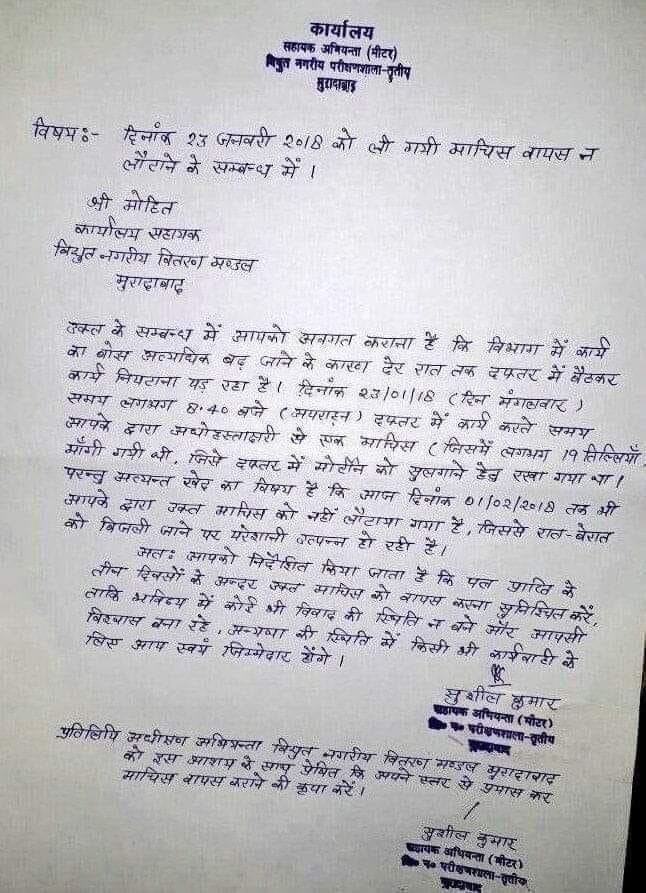 कार्यालय
सहायक अभियन्ता (मीटर)
विद्युत नगरीय परीक्षणशाला-तृतीय
मुरादाबाद
विषय:- दिनांक 23 जनवरी 2018 को ली गयी माचिस वापस न
लौटाने के सम्बन्ध में।
श्री मोहित
कार्यालय सहायक
विद्युत नगरीय वितरण मण्डल
मुरादाबाद
उक्त के सम्बन्ध में आपको अवगत कराना है कि विभाग में कार्य
का बोझ अत्यधिक बढ़ जाने के कारण देर रात तक दफ्तर में बैठकर
कार्य निपटाना पड़ रहा है। दिनांक 23/01/18 (दिन मंगलवार)
समय लगभग 8.40 बजे (अपराह्न) दफ्तर में कार्य करते समय
आपके द्वारा अधोहस्ताक्षरी से एक माचिस (जिसमें लगभग 19 तिल्लियाँ,
माँगी गयी थी, जिसे दफ्तर में मोर्टीन को सुलगाने हेतु रखा गया था।
परन्तु अत्यन्त खेद का विषय है कि आज दिनांक 01/02/2018 तक भी
आपके द्वारा उक्त माचिस को नहीं लौटाया गया है, जिससे रात-बेरात
को बिजली जाने पर परेशानी उत्पन्न हो रही है।
अतः आपको निर्देशित किया जाता है कि पत्र प्राप्ति के
तीन दिवसों के अन्दर उक्त माचिस को वापस करना सुनिश्चित करें,
ताकि भविष्य में कोई भी विवाद की स्थिति न बने और आपसी
विश्वास बना रहे, अन्यथा की स्थिति में किसी भी कार्यवाही के
लिए आप स्वयं जिम्मेदार होंगे।
सुशील कुमार
सहायक अभियन्ता (मीटर)
वि० न० परीक्षणशाला-तृतीय
मुरादाबाद
प्रतिलिपि अधीक्षण अभियन्ता विद्युत नगरीय वितरण मण्डल मुरादाबाद
को इस आशय के साथ प्रेषित कि अपने स्तर से प्रयास कर
माचिस वापस कराने की कृपा करें।
सुशील कुमार
सहायक अभियन्ता (मीटर)
वि० न० परीक्षणशाला-तृतीय
मुरादाबाद